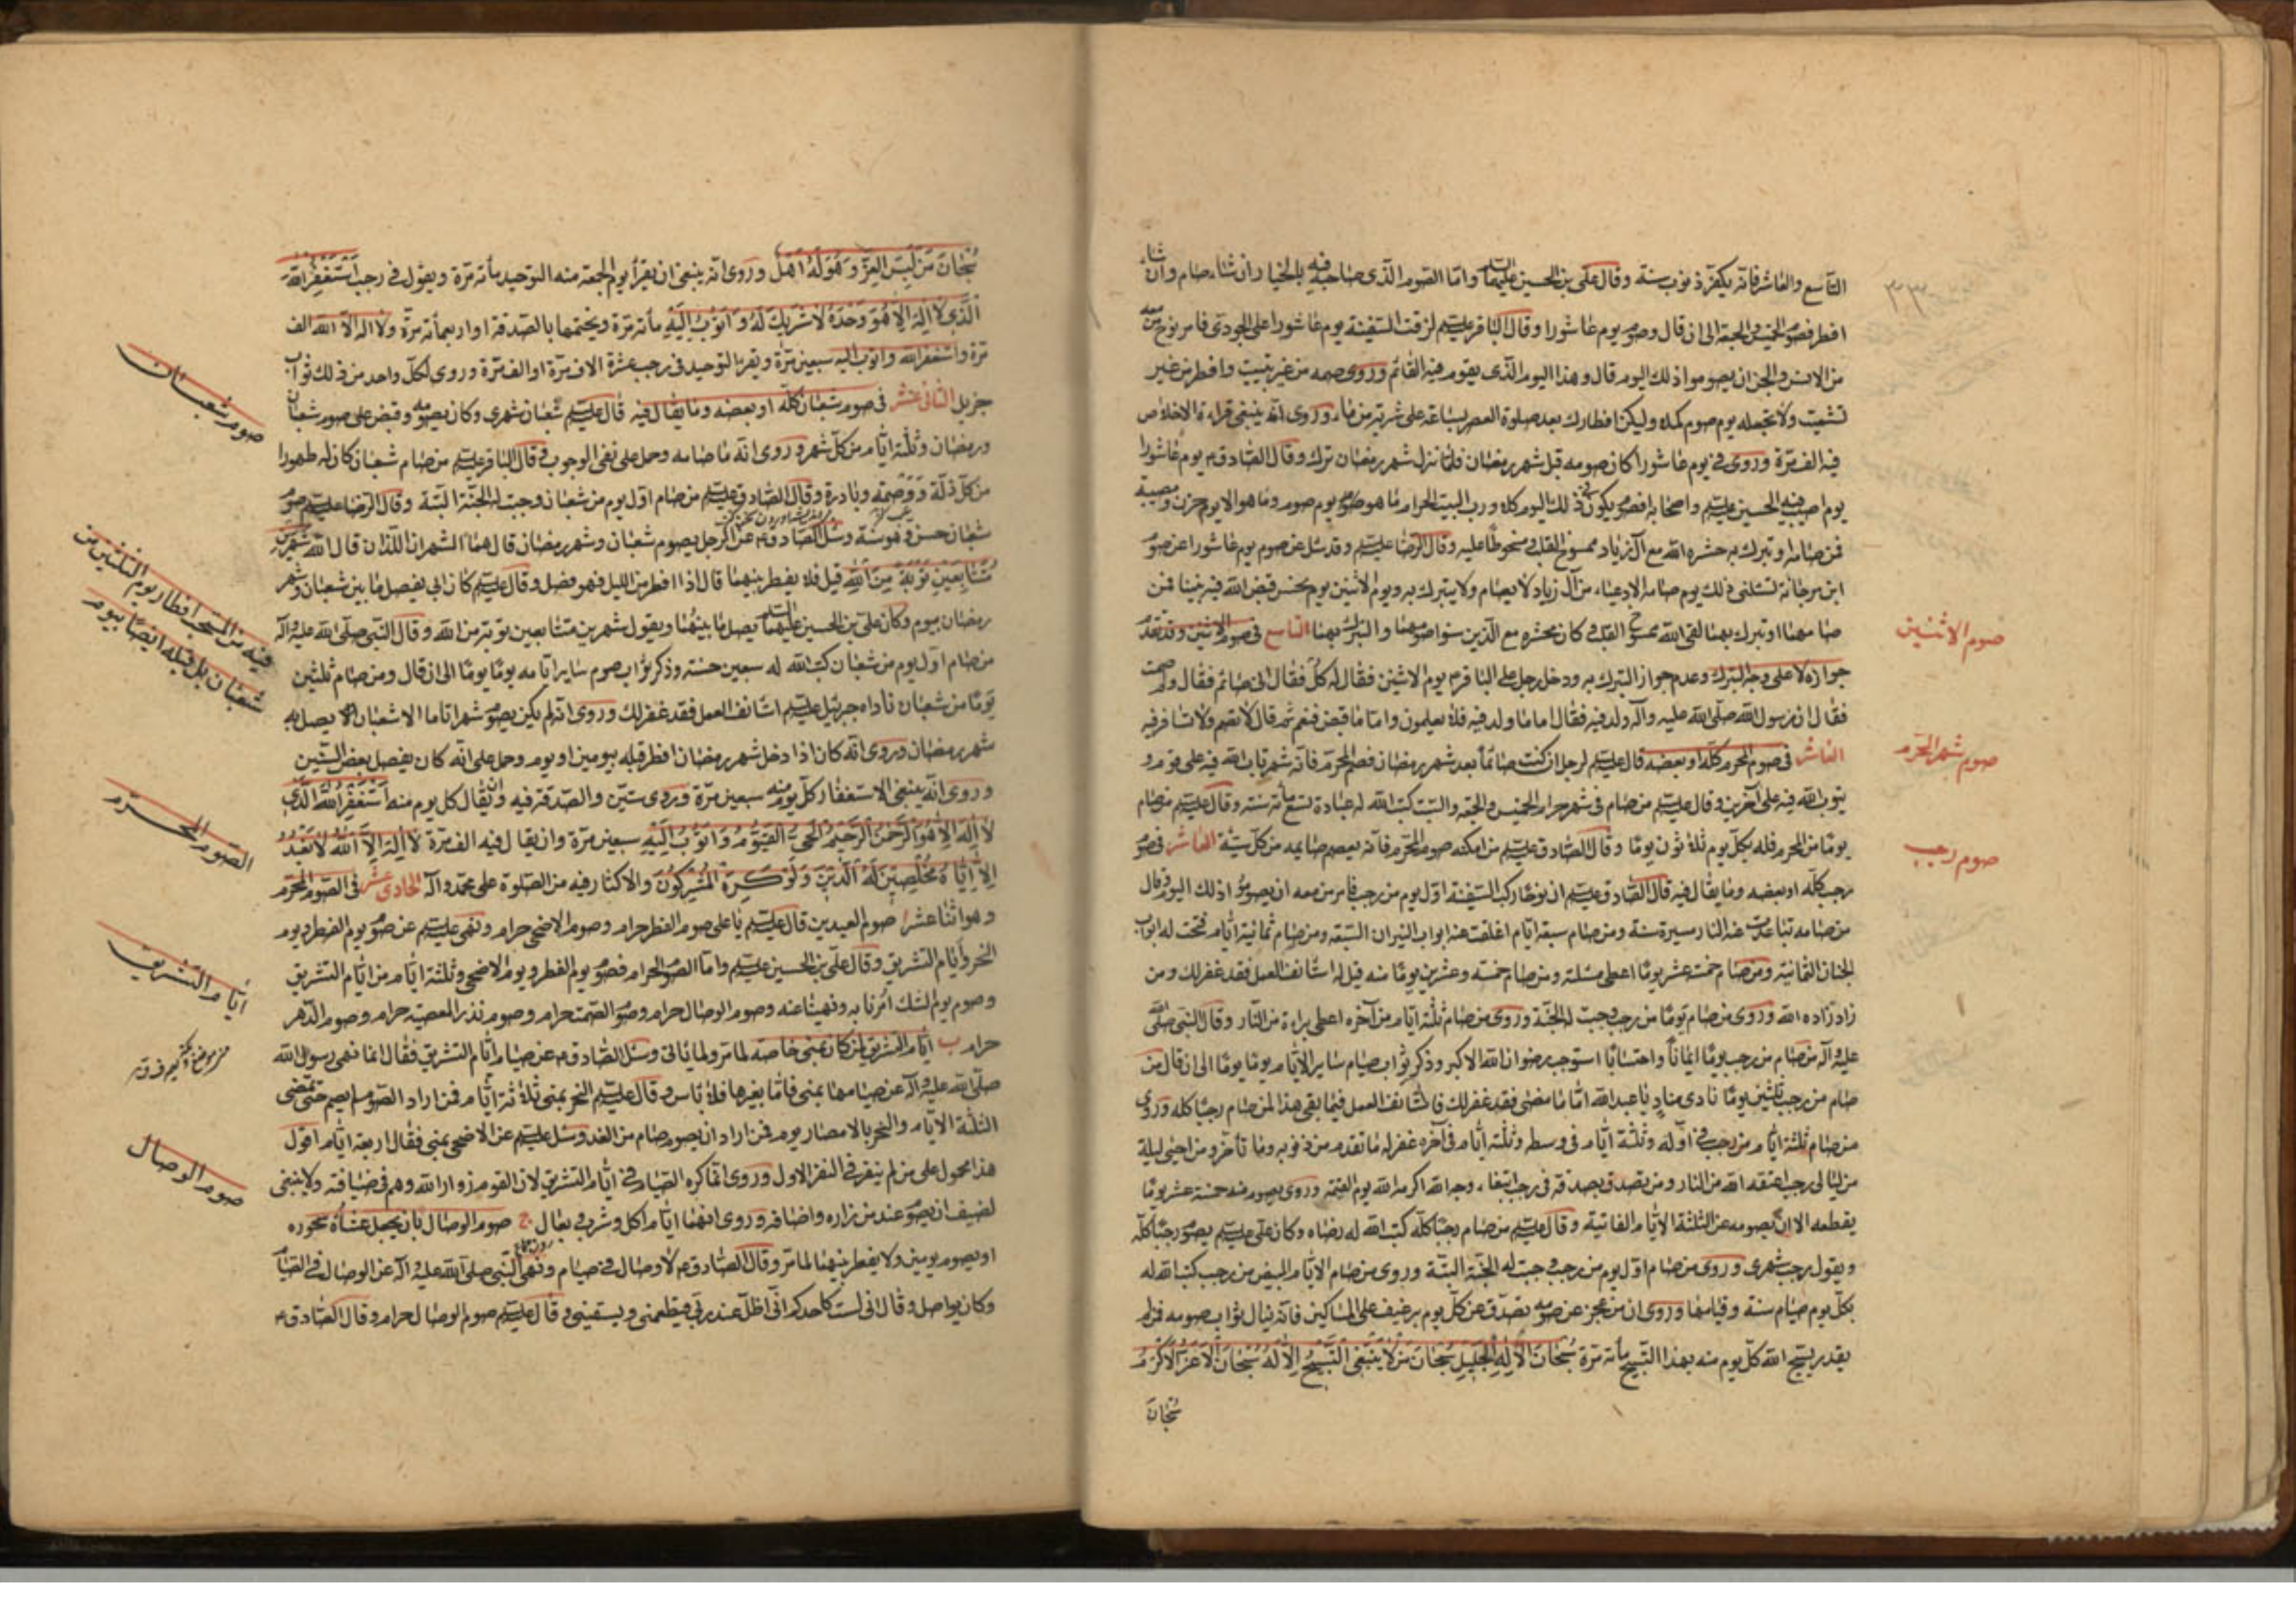 التاسع والعاشر فانه يكفر ذنوب سنة وقال علي بن الحسين عليهما السلام واما الصوم الذي صاحبه فيه بالخيار ان شاء صام وان شاء
افطر فصوم الخميس والجمعة الى ان قال وصوم يوم عاشورا وقال الباقر عليه السلام لزقت السفينة يوم عاشورا على الجودي فامر نوح من معه
من الانس والجن ان يصوموا ذلك اليوم قال وهذا اليوم الذي يقوم فيه القائم وروى صمه من غير تبييت وافطر من غير
تشميت ولا تجعله يوم صوم كملا وليكن افطارك بعد صلوة العصر بساعة على شربة من ماء وروى انه ينبغي قراءة الاخلاص
فيه الف مرة وروى في يوم عاشورا كان صومه قبل شهر رمضان فلما نزل شهر رمضان ترك وقال الصادق ع يوم عاشورا
يوم اصيب فيه الحسين عليه السلام واصحابه افصوم يكون في ذلك اليوم كلا ورب البيت الحرام ما هو يوم صوم وما هو الا يوم حزن ومصيبة
فمن صامه او تبرك به حشره الله مع آل زياد ممسوخ القلب مسخوطا عليه وقال الرضا عليه السلام وقد سئل عن صوم يوم عاشورا عن صوم
ابن مرجانة تسئلني ذلك يوم صامه الادعياء من آل زياد لا يصام ولا يتبرك به ويوم الاثنين يوم نحس قبض الله فيه نبينا فمن
صامهما او تبرك بهما لقي الله ممسوخ القلب وكان محشره مع الذين سنوا صومهما والتبرك بهما التاسع في صوم الاثنين وقد تقدم
صوم الاثنين
جوازه لا على وجه التبرك وعدم جواز التبرك به ودخل رجل على الباقر ع يوم الاثنين فقال له كل فقال اني صائم فقال ولم صمت
فقال ان رسول الله صلى الله عليه وآله ولد فيه فقال اما ما ولد فيه فلا يعلمون واما ما قبض فنعم ثم قال لا تصم ولا تسافر فيه
العاشر في صوم المحرم كله او بعضه قال عليه السلام لرجل ان كنت صائما بعد شهر رمضان فصم المحرم فانه شهر تاب الله فيه على قوم و
صوم شهر المحرم
يتوب الله فيه على آخرين وقال عليه السلام من صام في شهر حرام الخميس والجمعة والسبت كتب الله له عبادة تسعمأة سنة وقال عليه السلام من صام
يوما من المحرم فله بكل يوم ثلاثون يوما وقال الصادق عليه السلام من امكنه صوم المحرم فانه يعصم صايمه من كل سيئة العاشر في صوم
صوم رجب
رجب كله او بعضه وما يقال فيه قال الصادق عليه السلام ان نوحا ركب السفينة اول يوم من رجب فامر من معه ان يصوموا ذلك اليوم وقال
من صامه تباعدت عنه النار مسيرة سنة ومن صام سبعة ايام اغلقت عنه ابواب النيران السبعة ومن صام ثمانية ايام فتحت له ابواب
الجنان الثمانية ومن صام خمسة عشر يوما اعطى مسئلته ومن صام خمسة وعشرين يوما منه قيل له استانف العمل فقد غفر لك ومن
زاد زاده الله وروى من صام يوما من رجب وجبت له الجنة وروى من صام ثلثة ايام من آخره اعطى براءة من النار وقال النبي صلى الله
عليه وآله من صام من رجب يوما ايمانا واحتسابا استوجب رضوان الله الاكبر وذكر ثواب صيام ساير الايام يوما يوما الى ان قال من
صام من رجب ثلثين يوما نادى مناد يا عبد الله اما ما مضى فقد غفر لك فاستانف العمل فيما بقي هذا لمن صام رجبا كله وروى
من صام ثلثة ايام من رجب في اوله وثلثة ايام في وسطه وثلثة ايام في آخره غفر له ما تقدم من ذنوبه وما تأخر ومن احيى ليلة
من ليالي رجب اعتقه الله من النار ومن تصدق بصدقة في رجب ابتغاء وجه الله اكرمه الله يوم القيمة وروى يصوم منه خمسة عشر يوما
يقطعه الا ان يصومه عن الثلثة الايام الفايتة وقال عليه السلام من صام رجبا كله كتب الله له رضاه وكان علي عليه السلام يصوم رجبا كله
ويقول رجب شهري وروى من صام اول يوم من رجب وجبت له الجنة البتة وروى من صام الايام البيض من رجب كتب الله له
بكل يوم صيام سنة وقيامها وروى ان من عجز عن صومه تصدق عن كل يوم برغيف على المساكين فانه ينال ثواب صومه فان لم
يقدر يسبح الله كل يوم منه بهذا التسبيح مأته مرة سُبْحَانَ الْإِلهِ الْجَلِيلِ سُبْحَانَ مَنْ لَا يَنْبَغِي التَّسْبِيحُ إِلَّا لَهُ سُبْحَانَ الْأَعَزِّ الْأَكْرَمِ
سُبْحَانَ
سُبْحَانَ مَنْ لَبِسَ الْعِزَّ وَهُوَ لَهُ أَهْلٌ وروى انه ينبغي ان يقرأ يوم الجمعة منه التوحيد مأته مرة ويقول في رجب أَسْتَغْفِرُ اللهَ
الَّذِي لَا إِلهَ إِلَّا هُوَ وَحْدَهُ لَا شَرِيكَ لَهُ وَأَتُوبُ إِلَيْهِ مأته مرة ويختمها بالصدقة او اربعمأته مرة ولا اله الا الله الف
مرة واستغفر الله واتوب اليه سبعين مرة ويقرء التوحيد في رجب عشرة الاف مرة او الف مرة وروى لكل واحد من ذلك ثواب
جزيل الثاني عشر في صوم شعبان كله او بعضه وما يقال فيه قال عليه السلام شعبان شهري وكان يصومه وقبض على صوم شعبان
صوم شعبان
ورمضان وثلثة ايام من كل شهر وروى انه ما صامه وحمل على نفي الوجوب وقال الباقر عليه السلام من صام شعبان كان له طهورا
من كل زلة ووصمة وبادرة وقال الصادق عليه السلام من صام اول يوم من شعبان وجبت له الجنة البتة وقال الرضا عليه السلام صوم
شعبان حسن وهو سنة وسئل الصادق ع عن الرجل يصوم شعبان وشهر رمضان قال هما الشهران اللذان قال الله شَهْرَيْنِ
مُتَتَابِعَيْنِ تَوْبَةً مِنَ اللهِ قيل فلا يفطر بينهما قال اذا افطر من الليل فهو فصل وقال عليه السلام كان ابي يفصل ما بين شعبان وشهر
رمضان بيوم وكان علي بن الحسين عليهما السلام يصل ما بينهما ويقول شهرين متتابعين توبة من الله وقال النبي صلى الله عليه وآله
فيه من السحر افطار يوم الثلثين من
شعبان بل قبله ايضا بيوم
من صام اول يوم من شعبان كتب الله له سبعين حسنة وذكر ثواب صوم ساير ايامه يوما يوما الى ان قال ومن صام ثلثين
يوما من شعبان ناداه جبرئيل عليه السلام استانف العمل فقد غفر لك وروى انه لم يكن يصوم شهرا تاما الا شعبان يصل به
شهر رمضان وروى انه كان اذا دخل شهر رمضان افطر قبله بيومين او يوم وحمل على انه كان يفصل بعض السنين
وروى انه ينبغي الاستغفار كل يوم منه سبعين مرة وروى ستين والصدقة فيه وان يقال كل يوم منه أَسْتَغْفِرُ اللهَ الَّذِي
لَا إِلهَ إِلَّا هُوَ الرَّحْمنُ الرَّحِيمُ الْحَيُّ الْقَيُّومُ وَأَتُوبُ إِلَيْهِ سبعين مرة وان يقال فيه الف مرة لَا إِلهَ إِلَّا اللهُ لَا نَعْبُدُ
إِلَّا إِيَّاهُ مُخْلِصِينَ لَهُ الدِّينَ وَلَوْ كَرِهَ الْمُشْرِكُونَ والاكثار فيه من الصلوة على محمد وآله الحادي عشر في الصوم المحرم
الصوم المحرم
وهو اثنا عشر ا صوم العيدين قال عليه السلام يا علي صوم الفطر حرام وصوم الاضحى حرام ونهى عليه السلام عن صوم يوم الفطر ويوم
النحر وايام التشريق وقال علي بن الحسين عليه السلام واما الصوم الحرام فصوم يوم الفطر ويوم الاضحى وثلثة ايام من ايام التشريق
ايام التشريق
وصوم يوم الشك امرنا به ونهينا عنه وصوم الوصال حرام وصوم الصمت حرام وصوم نذر المعصية حرام وصوم الدهر
حرام ب ايام التشريق لمن كان بمنى خاصة لما مر ولما ياتي وسئل الصادق ع عن صيام ايام التشريق فقال انما نهى رسول الله
صلى الله عليه وآله عن صيامها بمنى فاما بغيرها فلا باس وقال عليه السلام النحر بمنى ثلاثة ايام فمن اراد الصوم لم يصم حتى تمضي
الثلثة الايام والنحر بالامصار يوم فمن اراد ان يصوم صام من الغد وسئل عليه السلام عن الاضحى بمنى فقال اربعة ايام اقول
هذا محمول على من لم ينفر في النفر الاول وروى انما كره الصيام في ايام التشريق لان القوم زوار الله وهم في ضيافته ولا ينبغي
لضيف ان يصوم عند من زاره واضافه وروى انها ايام اكل وشرب وبعال ج صوم الوصال بان يجعل عشاءه سحوره
صوم الوصال
او يصوم يومين ولا يفطر بينهما لما مر وقال الصادق ع لا وصال في صيام ونهى النبي صلى الله عليه وآله عن الوصال في الصيام
وكان يواصل وقال اني لست كاحدكم اني اظل عند ربي فيطعمني ويسقيني وقال عليه السلام صوم الوصال حرام وقال الصادق ع